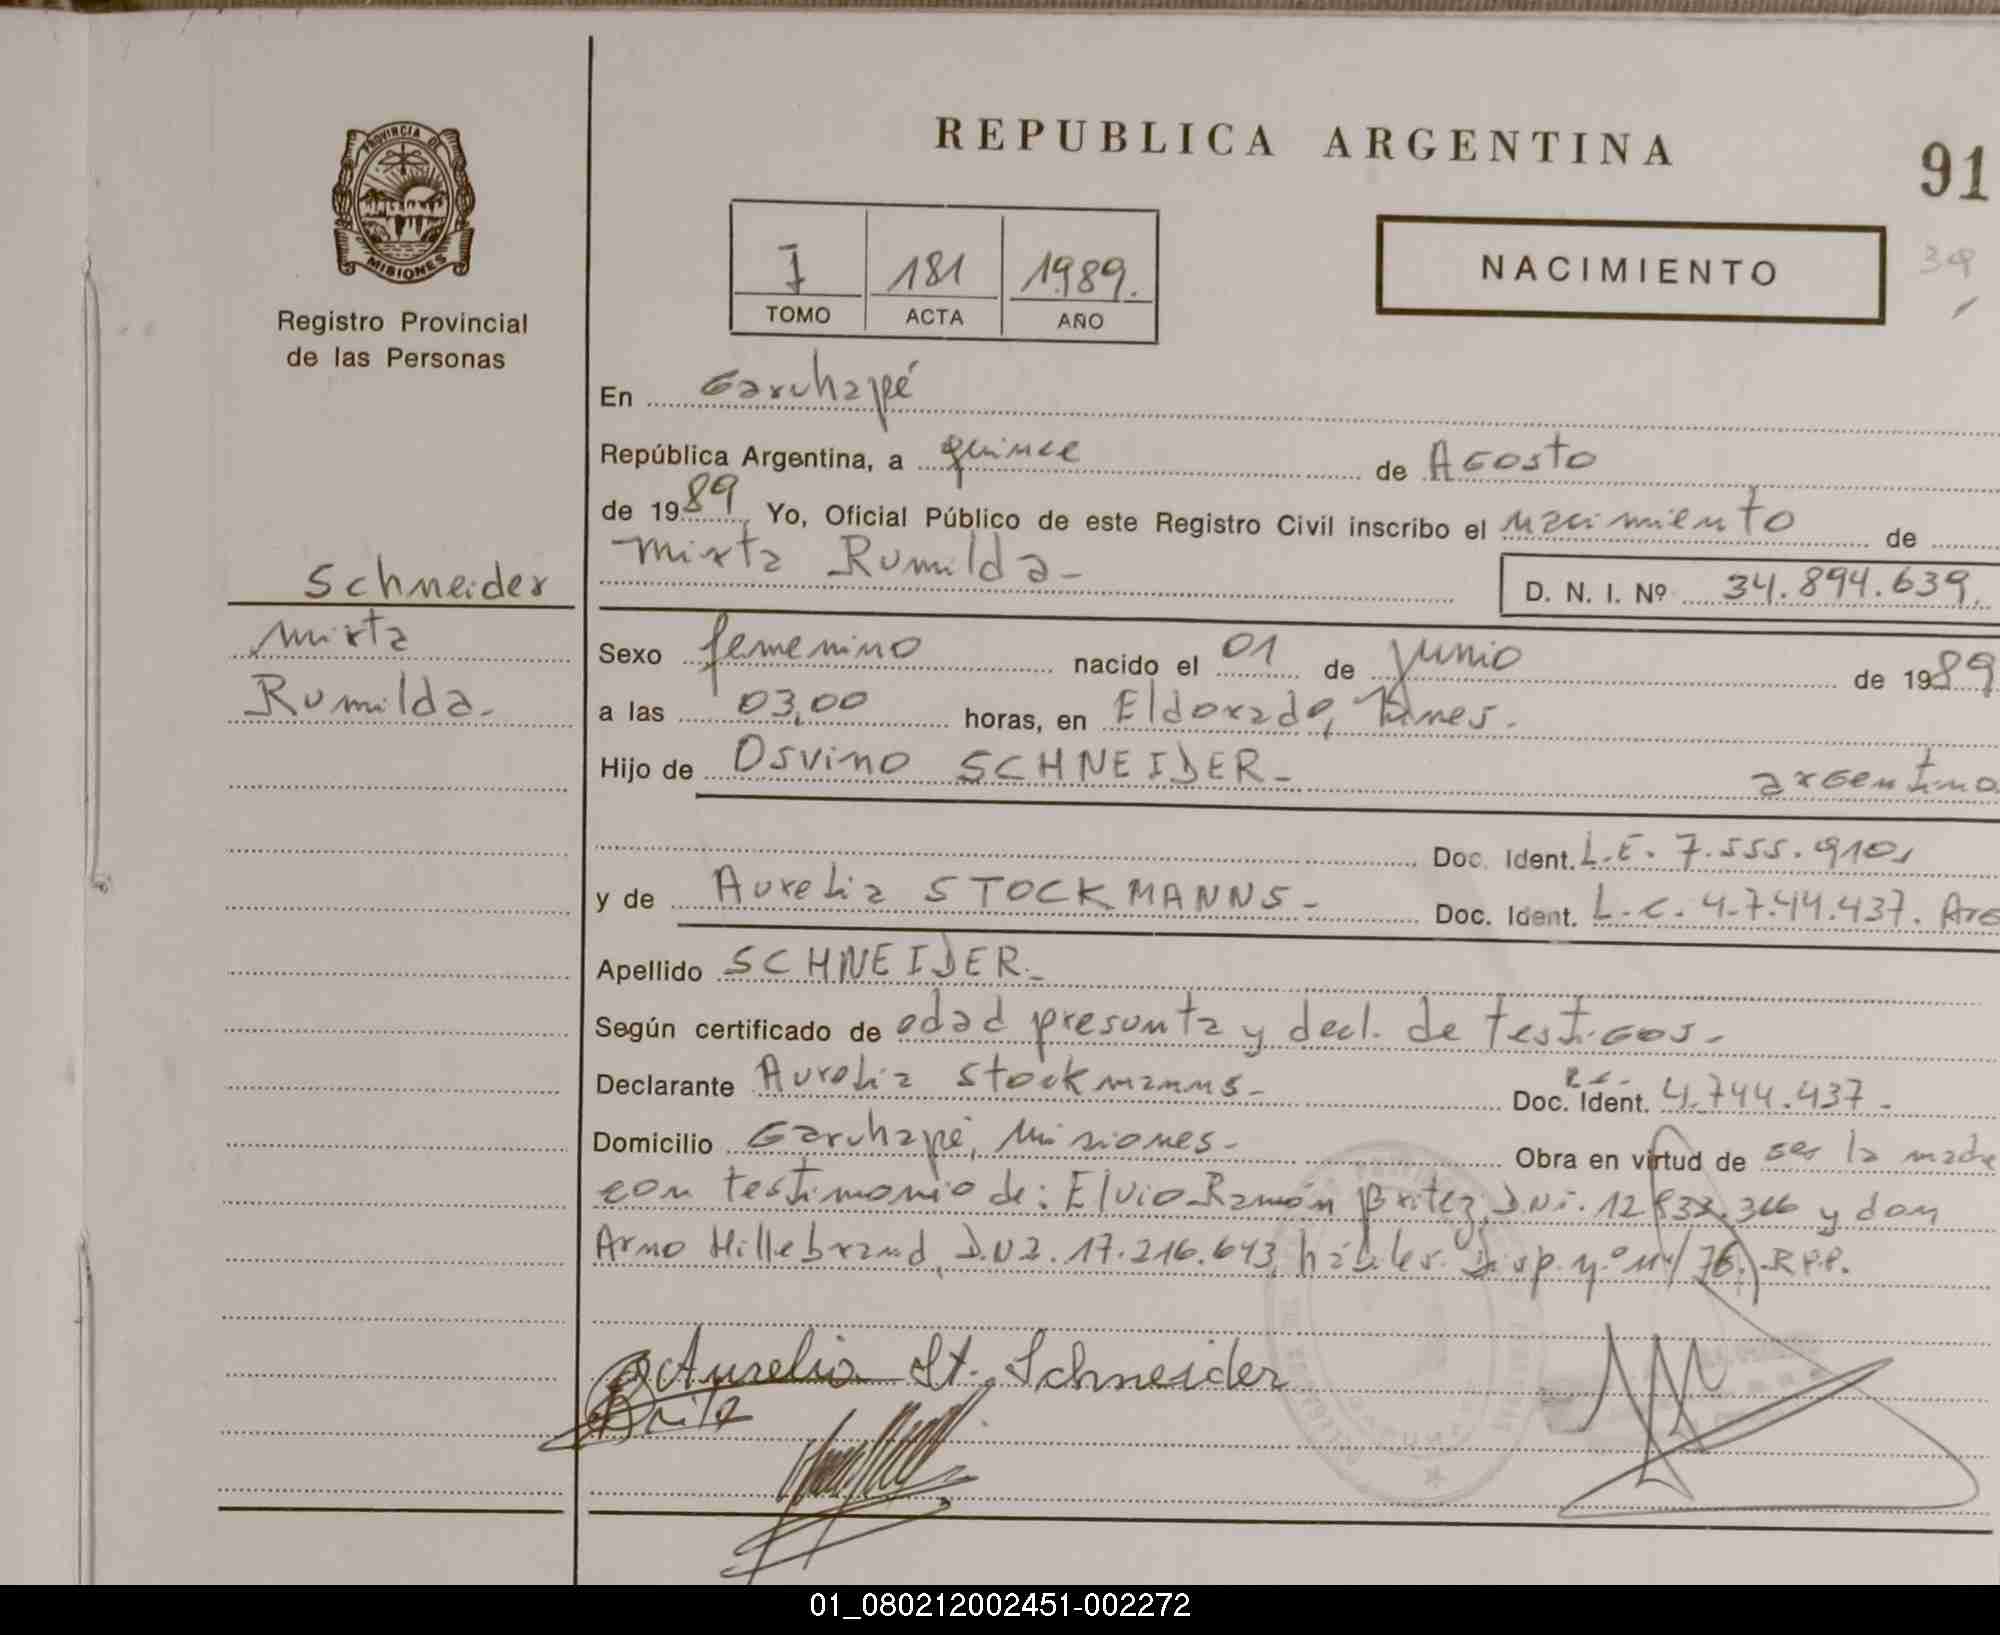 REPUBLICA ARGENTINA
91
PROVINCIA DE
MISIONES
Registro Provincial
de las Personas
I 181 1989.
TOMO ACTA AÑO
NACIMIENTO
En Garuhapé
República Argentina, a quince de Agosto
de 1989, Yo, Oficial Público de este Registro Civil inscribo el nacimiento de
Mirta Rumilda-
D. N. I. Nº 34.894.639.
Schneider
Mirta
Rumilda.-
Sexo femenino nacido el 01 de junio de 1989
a las 03,00 horas, en Eldorado, Mnes.
Hijo de Osvino SCHNEIDER- argentino
Doc. Ident. L.E. 7.555.910,
y de Aurelia STOCKMANNS- Doc. Ident. L.C. 4.744.437. Arg
Apellido SCHNEIDER.-
Según certificado de edad presunta y decl. de testigos.-
Declarante Aurelia Stockmanns- Doc. Ident. 4.744.437.-
Domicilio Garuhapé, Misiones- Obra en virtud de ser la madre
con testimonio de: Elvio Ramón Britez, D.N.I. 12.832.366 y don
Arno Hillebrand, D.N.I. 17.216.643, hábiles. Disp. nº 11/76. RPP.
Aurelia St. Schneider
Britez
01_080212002451-002272